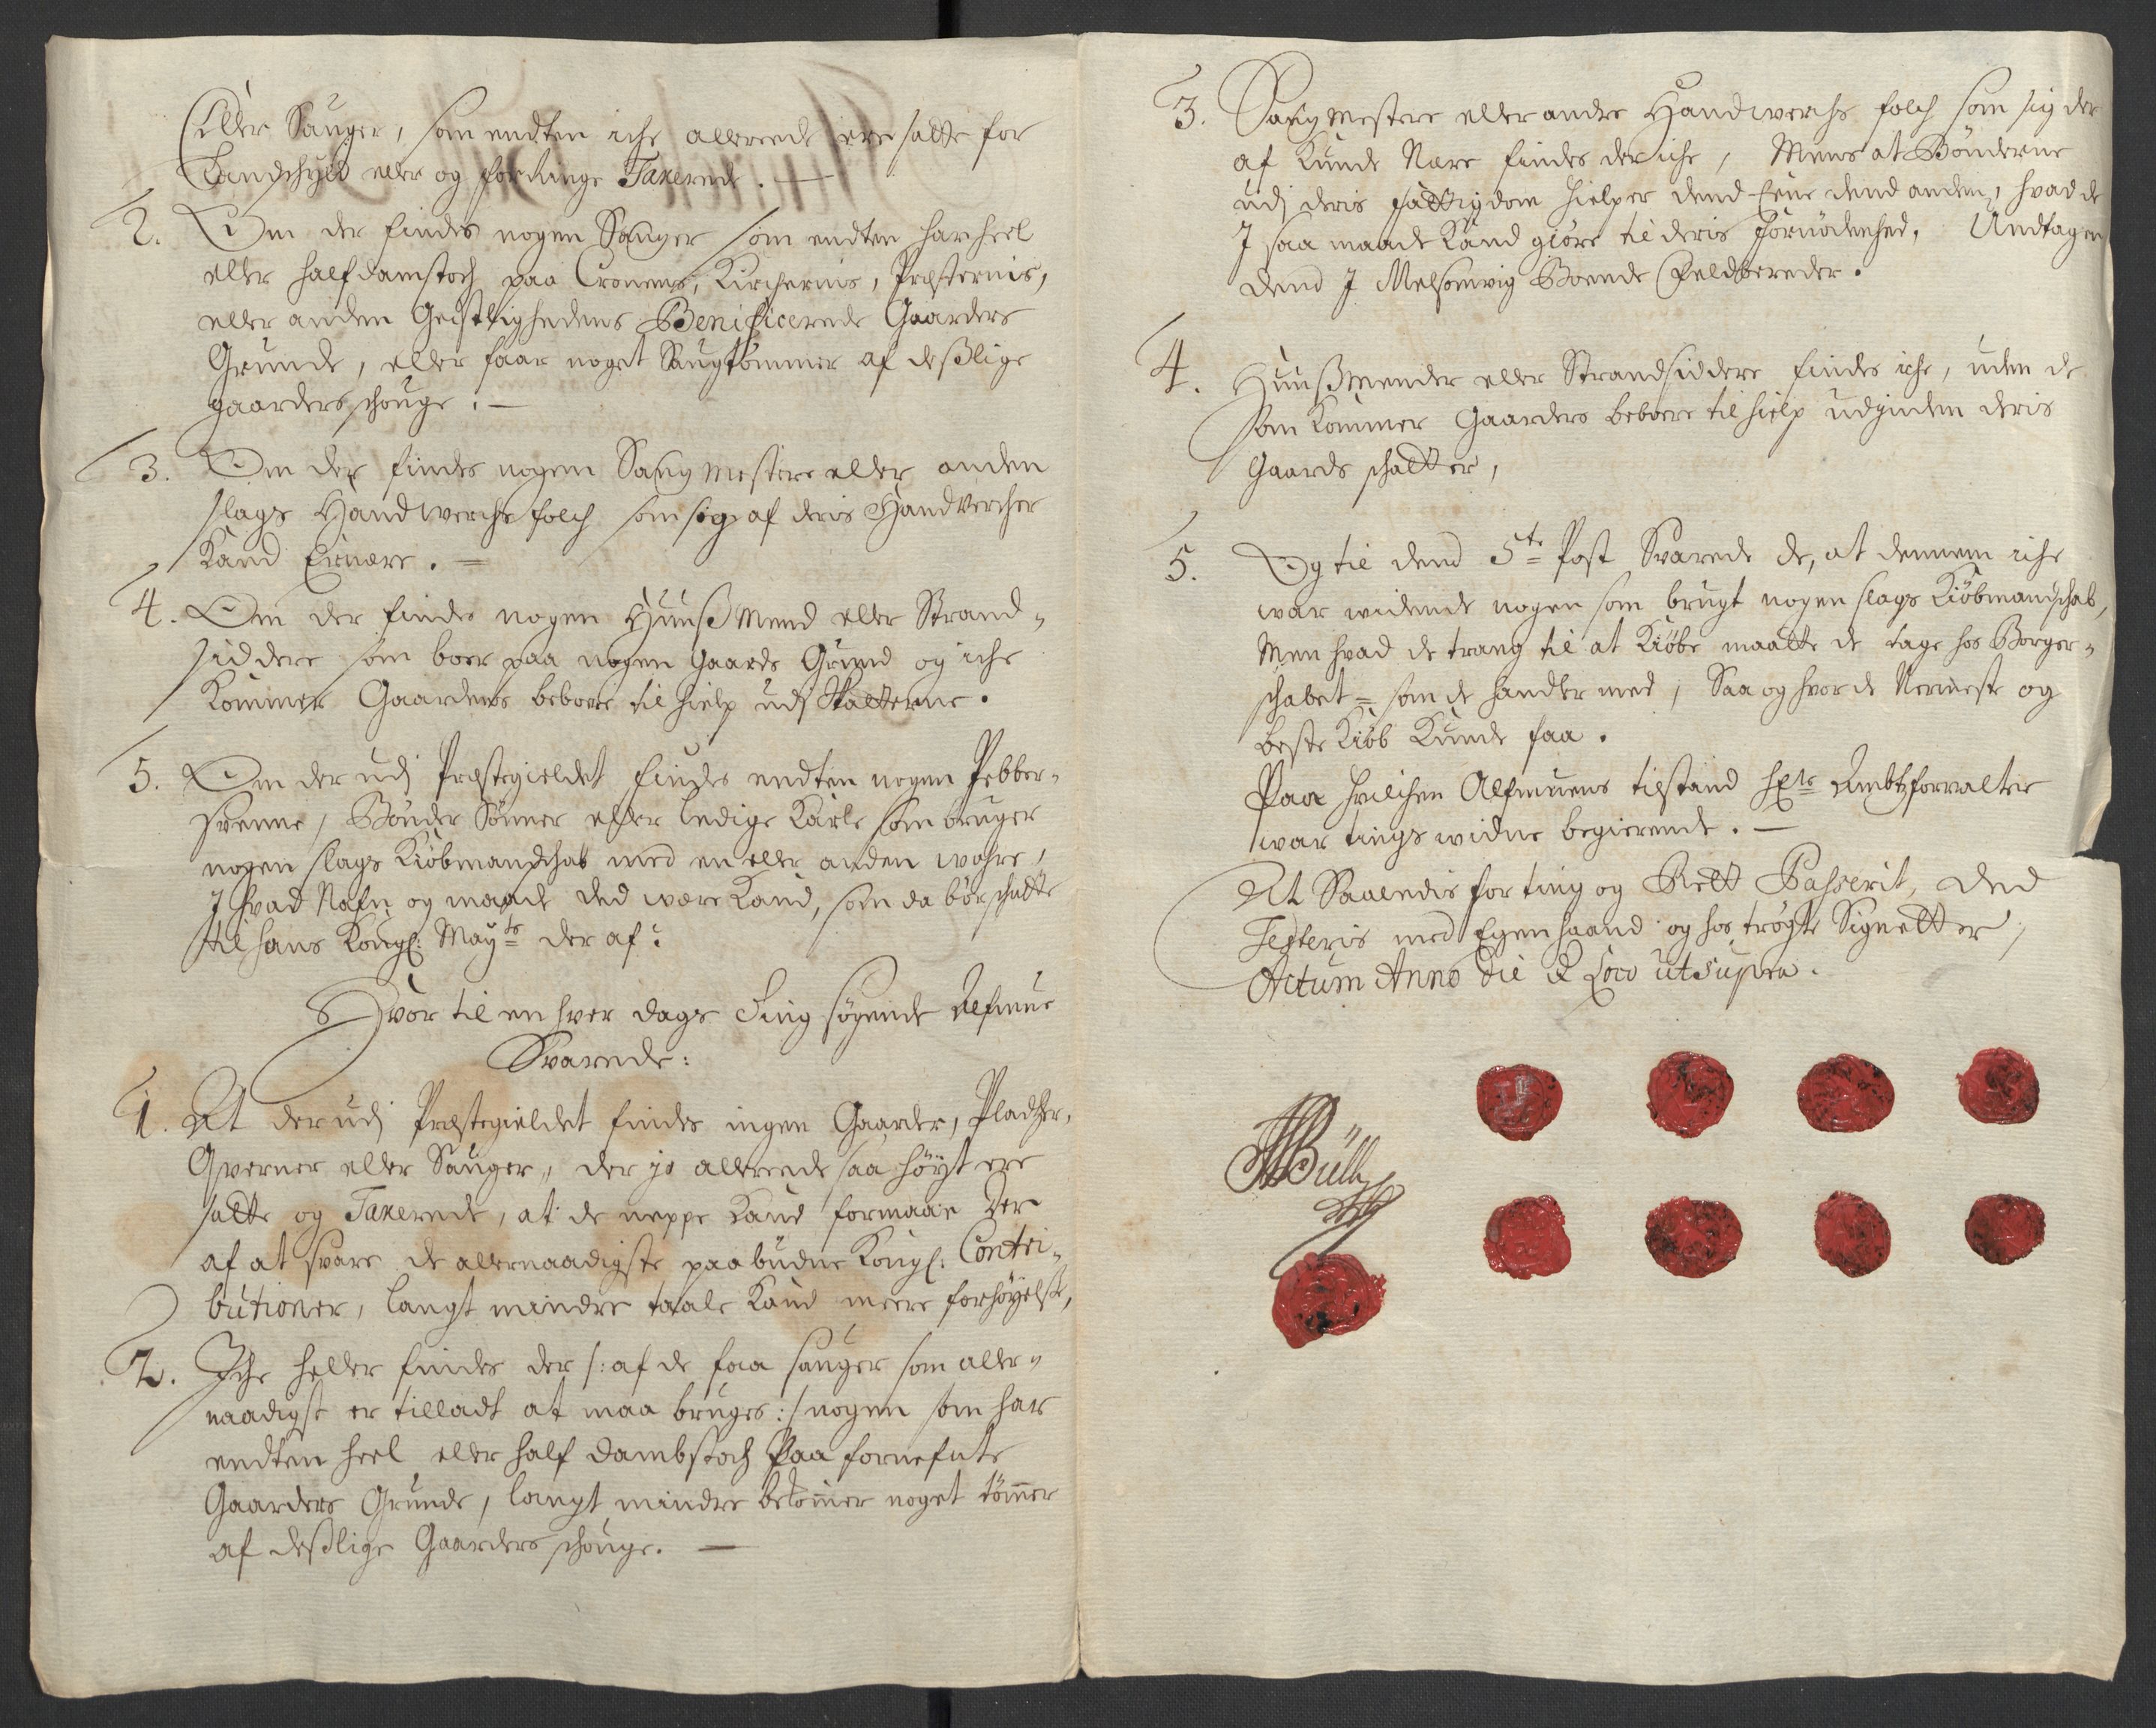 Eller Sauger, som endten iche allerede ere satte for
Landschyld eller og for Ringe Taxerede. —
2. Om der findes nogen Sauger som endten har heel
eller half damstoch paa Cronens, Kirchernis, Præsternis,
eller anden Geistlighedens Benificerede Gaarders
Grunde, eller faar noget Saugtømmer af desslige
gaarders schouge. —
3. Om der findes nogen Saugmestere eller anden
slags Handwerchs folch som sig af deris Handvercher
Kand Ernære. —
4. Om der findes nogen Huuss Mend eller Strand-
siddere som boer paa nogen Gaards Grund og iche
Kommer Gaardens beboere til hielp udj Skatterne.
5. Om der udj Præstegieldet findes endten nogen Pebber-
svenne, Bønder Sønner eller ledige Karle som bruger
nogen slags Kiøbmandschab med en eller anden wahre,
J hvad Nafn og maade ded være Kand, som da bør schatte
til hans Kongl: Mayts der af?
Hvor til en hver dags Ting søgende Almue
Svarede:
1. At der udj Præstegieldet findes ingen Gaarder, Pladzer,
Qverner eller Sauger, der jo allerede saa høyt ere
satte og Taxerede, at de neppe Kand formaae Der
af at svare de allernaadigste paabudne Kongl: Contri-
butioner, langt mindre taale Kand meere forhøyelse,
2. Iche heller findes der /: af de faa sauger som aller-
naadigst er tilladt at maa bruges :/ nogen som har
endten heel eller half dambstoch Paa fornefnte
Gaarders Grunde, langt mindre bekommer noget tømmer
af desslige Gaarders schouge. —
3. Saugmestere eller andre Handwerchs folch som sig der
af Kunde Nære findes der iche, Mens at Bønderne
udj deris fattigdom hielper dend Eene dend anden, hvad de
J saa maade Kand giøre til deris fornødenhed, Undtagen
dend J Melsomvig Boende Feldbereder.
4. Huussmender eller Strandsiddere findes iche, uden de
som Kommer Gaarders beboere til hielp udjnden deris
Gaards schatter,
5. Og til dend 5te Post Svarede de, at dennem iche
war widende nogen som brugt nogen slags Kiøbmandschab,
Men hvad de trang til at Kiøbe maatte de tage hos Borger-
schabet = som de handler med, Saa og hvor de Nermeste og
beste Kiøb Kunde faa.
Paa hvilchen Almuens tilstand Ambtsforvalter
war tings widne begierende. —
At Saaledis for ting og Rett Passerit, Ded
Testeris med Egen haand og hos trøgte Signetter,
Actum Anno Die & Loco utsupra.